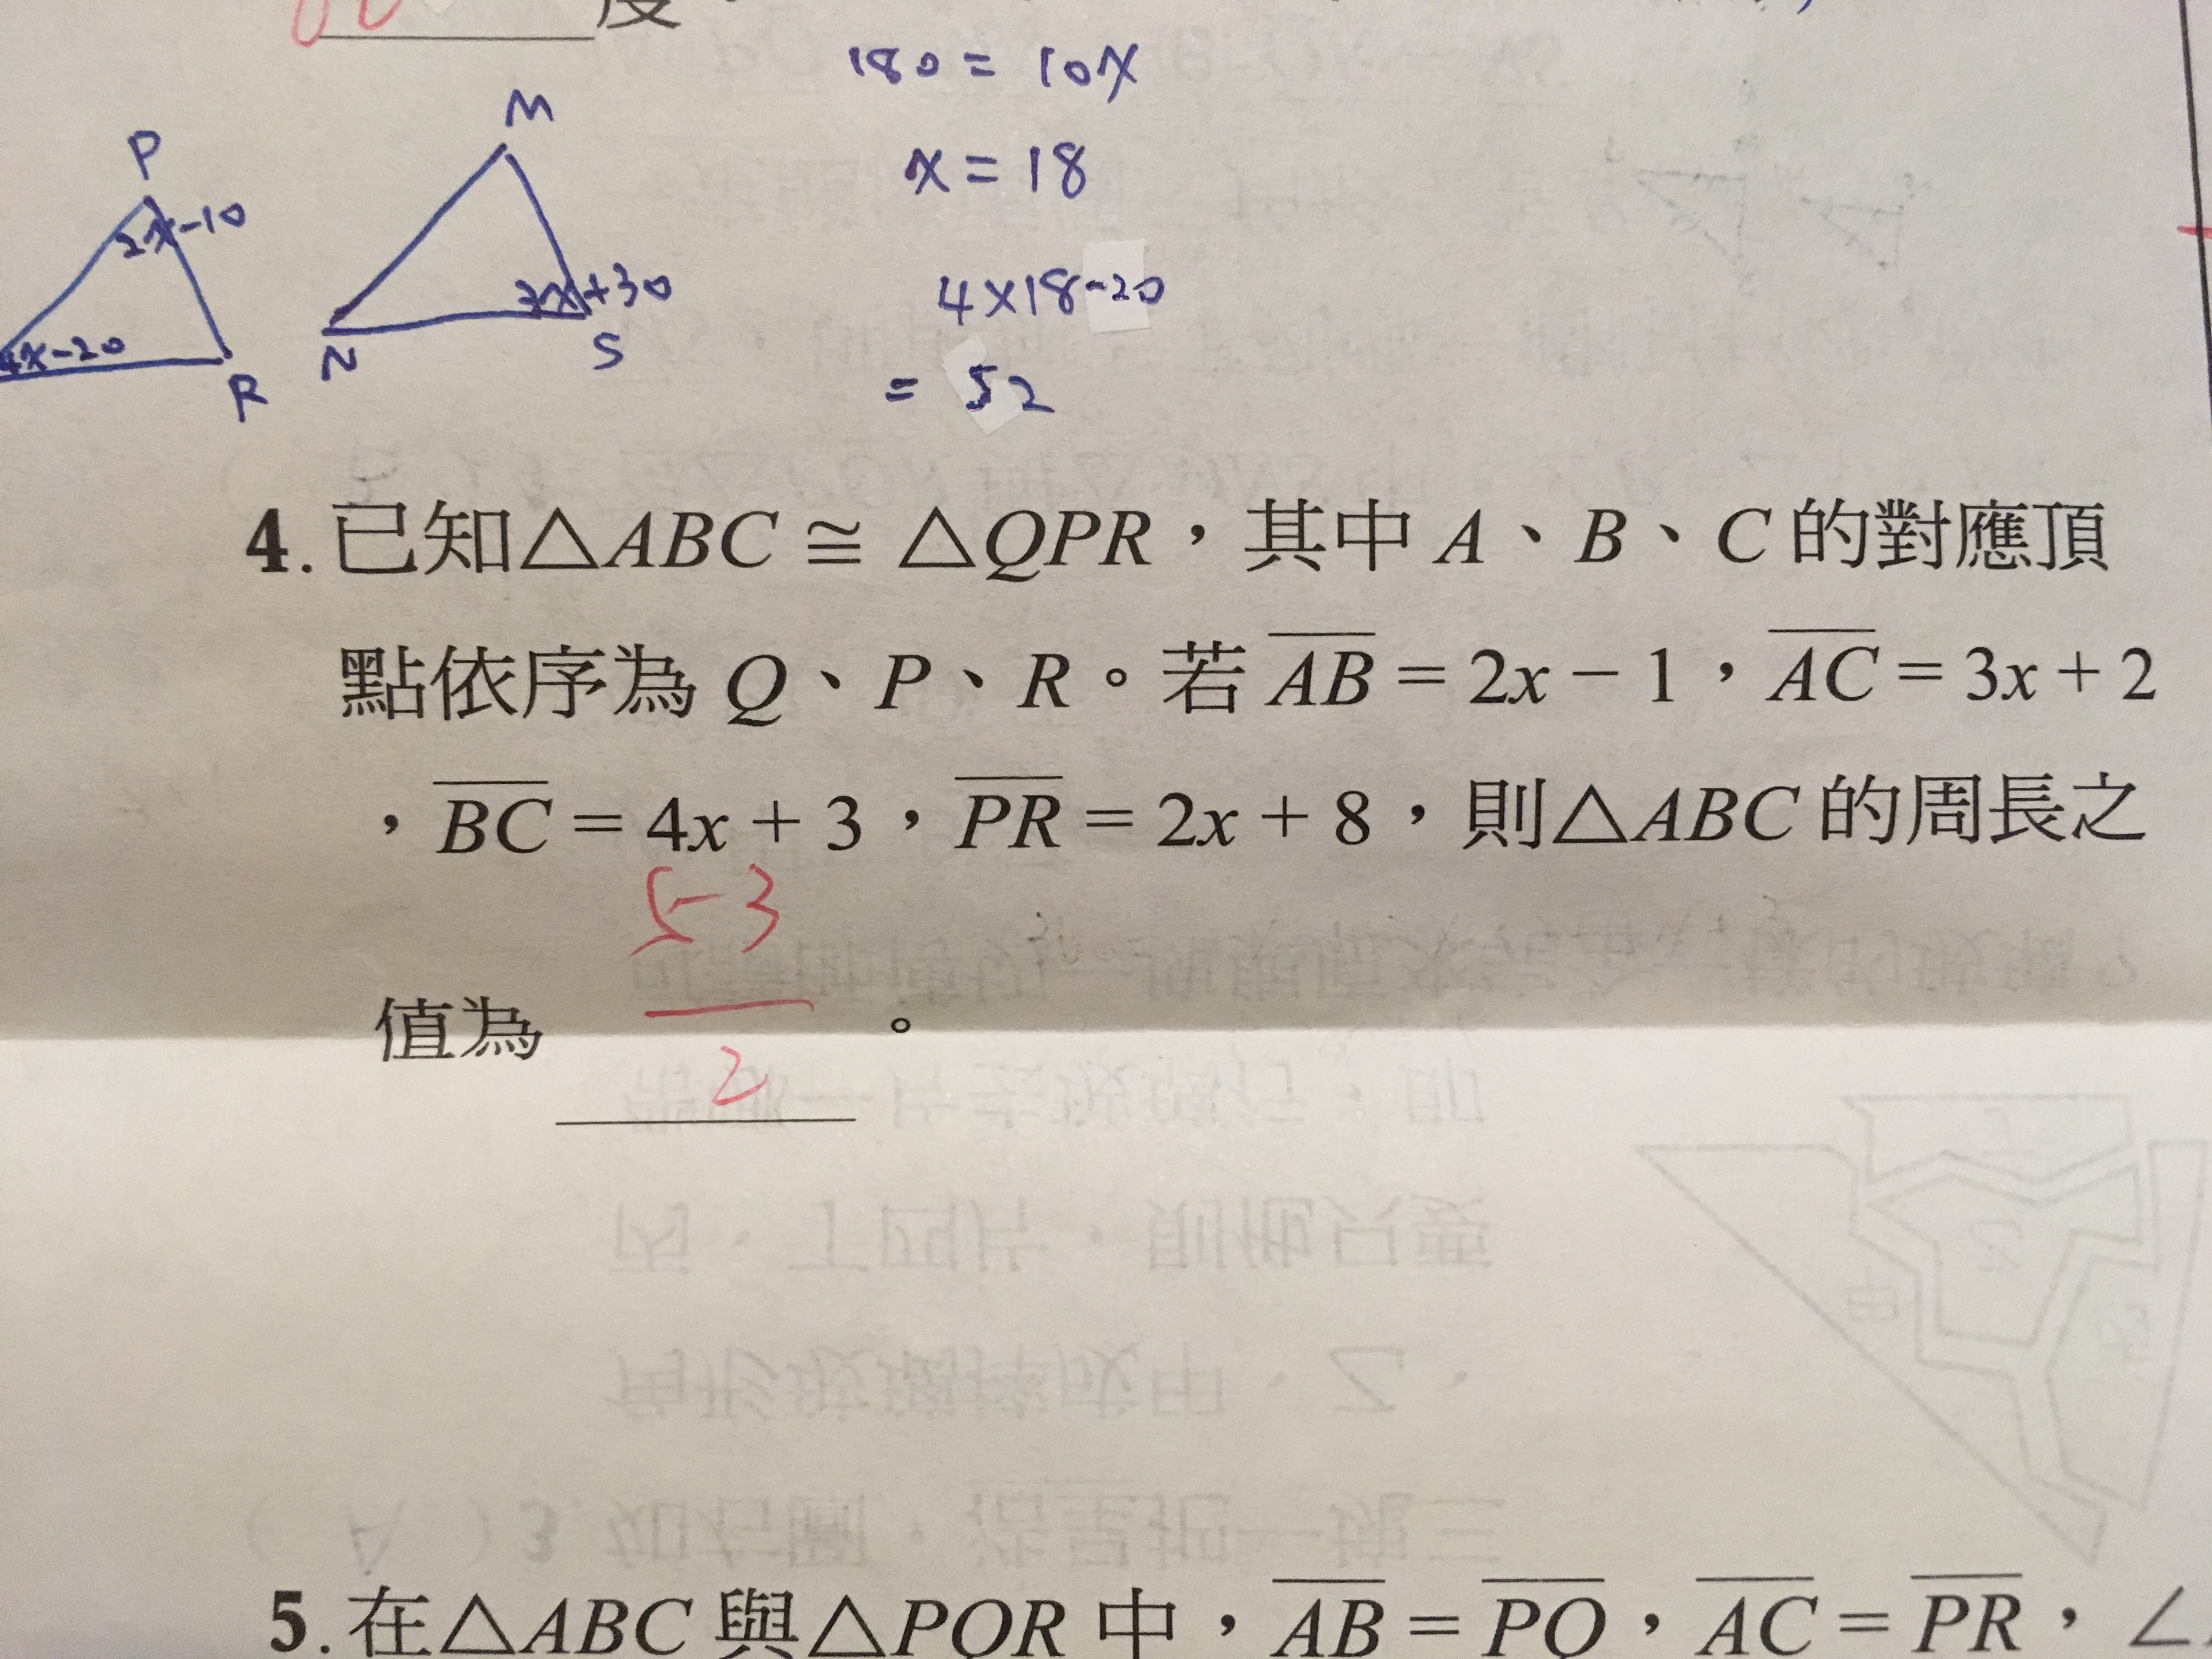 度
180 = 10x
x = 18
4×18-20
= 52
P
2x-10
4x-20
R
M
N
S
4. 已知△ABC ≅ △QPR，其中 A、B、C 的對應頂
點依序為 Q、P、R。若 AB = 2x − 1，AC = 3x + 2
，BC = 4x + 3，PR = 2x + 8，則△ABC 的周長之
53
值為 ＿＿＿。
2
5. 在△ABC 與△PQR 中，AB = PQ，AC = PR，∠